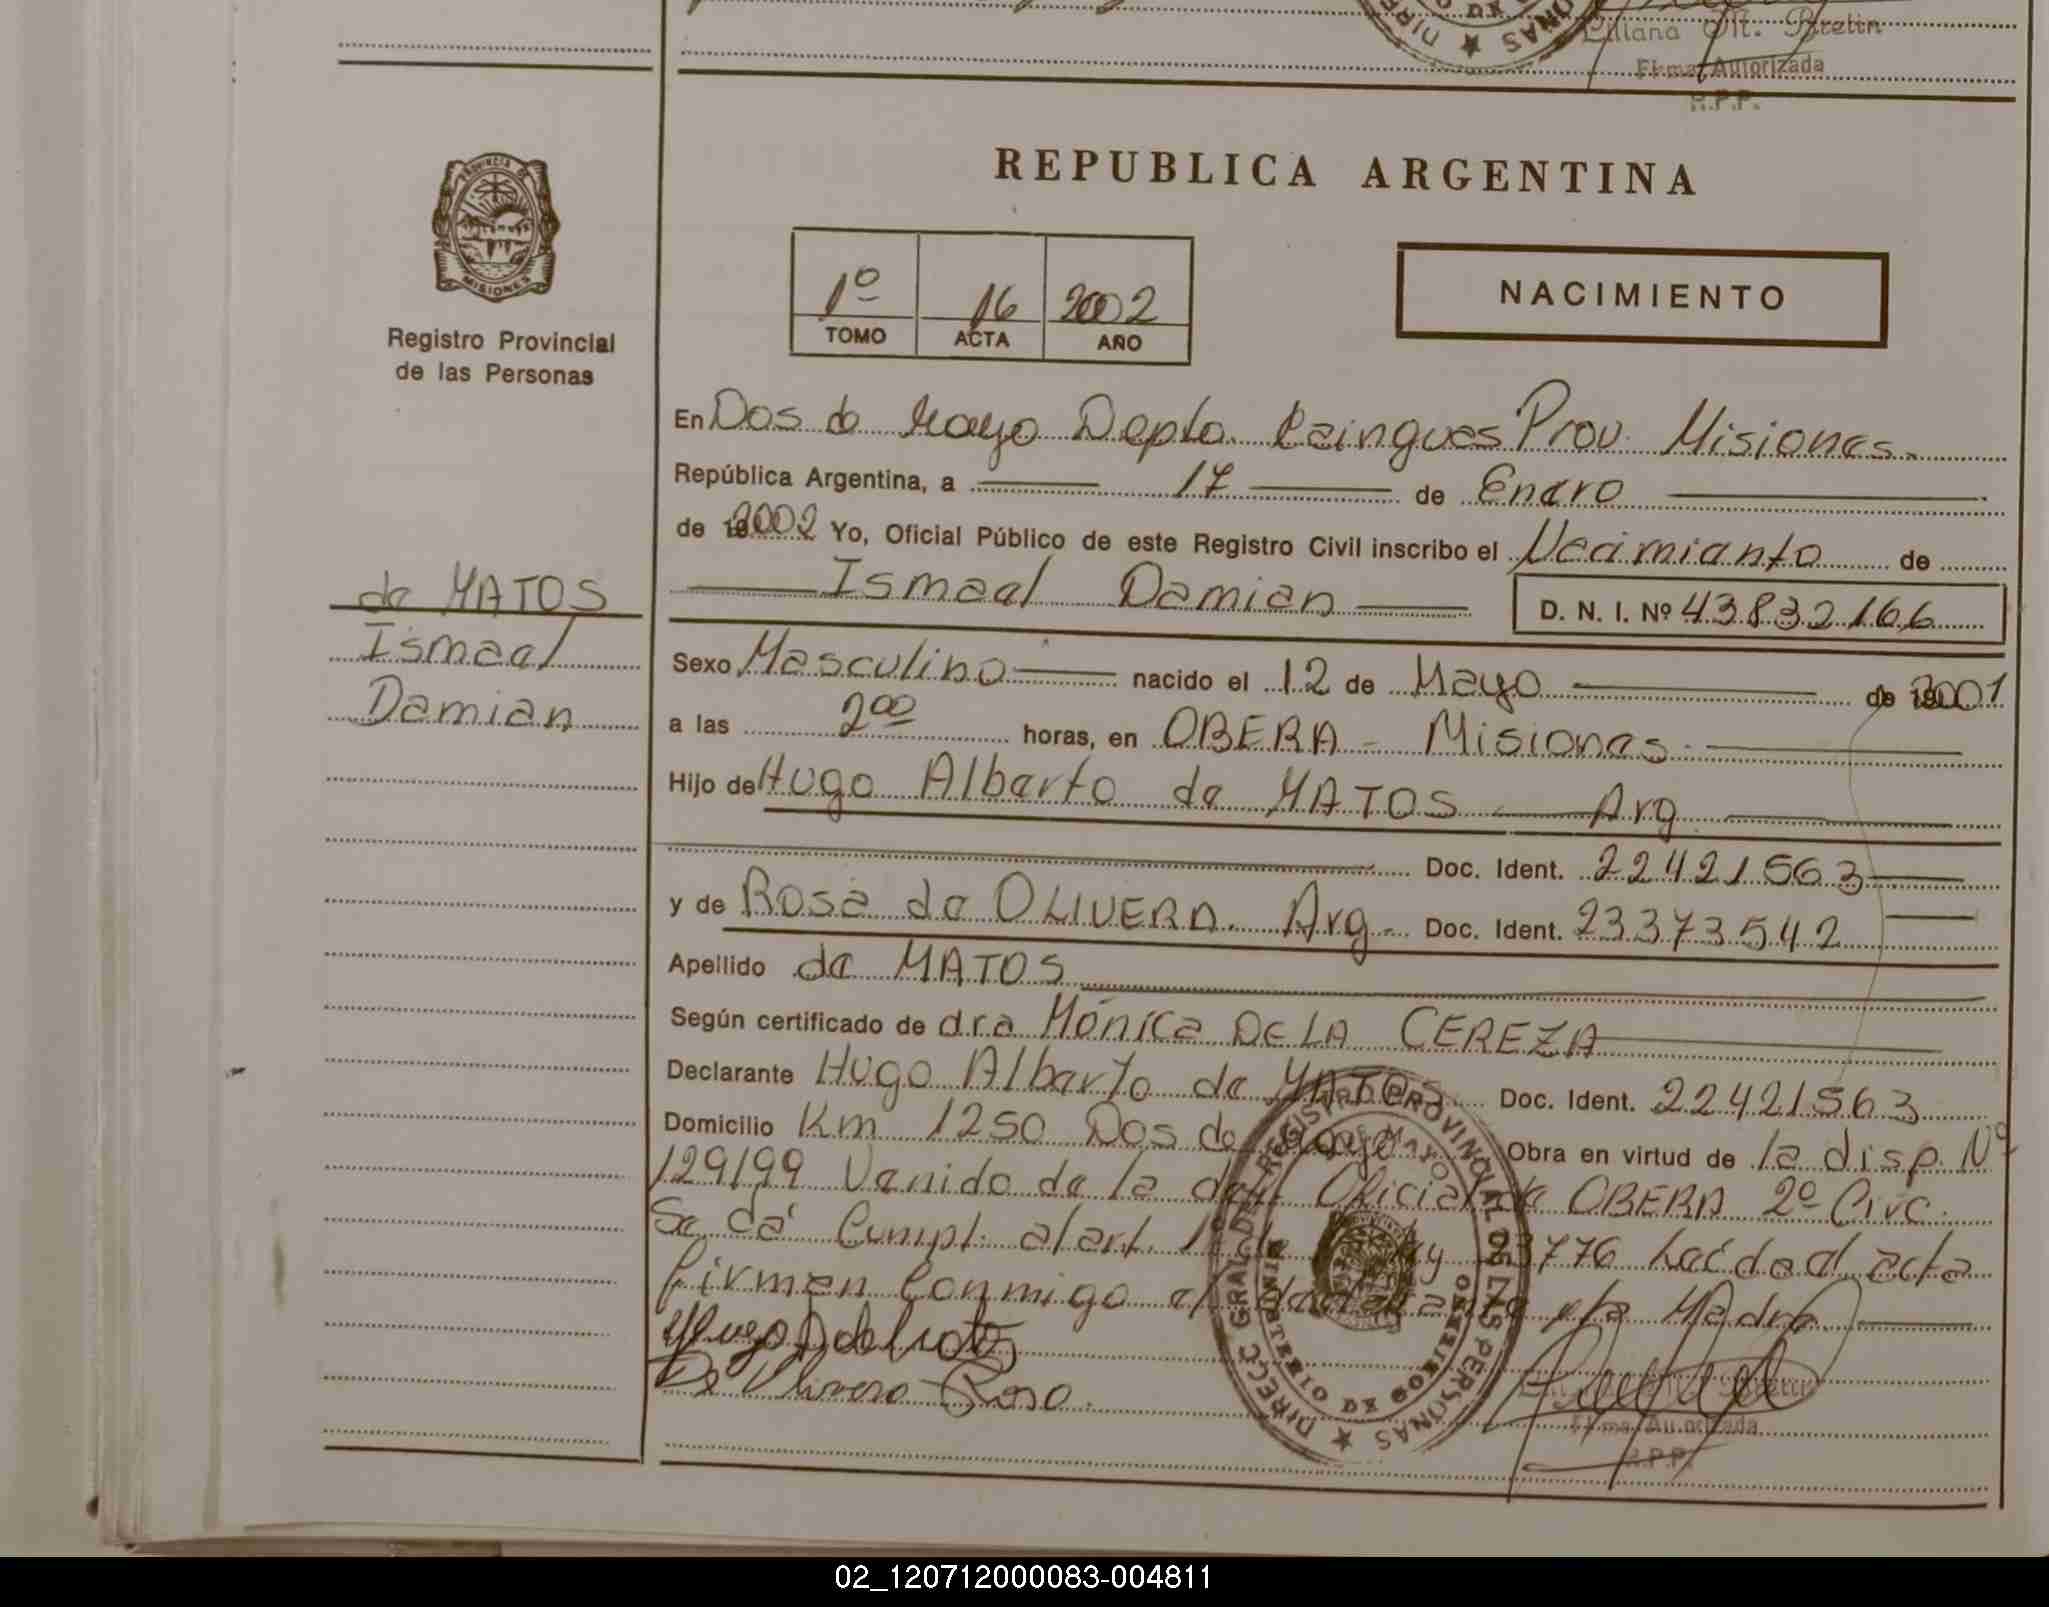 Liliana M. Bretin
Firma Autorizada
R.P.P.
REPUBLICA ARGENTINA
PROVINCIA DE
MISIONES
Registro Provincial
de las Personas
1º 16 2002
TOMO ACTA AÑO
NACIMIENTO
En Dos de Mayo Depto. Cainguas Prov. Misiones.
República Argentina, a 17 de Enero
de 2002 Yo, Oficial Público de este Registro Civil inscribo el Nacimiento de
Ismael Damian D. N. I. Nº 43832166
de MATOS
Ismael
Damian
Sexo Masculino nacido el 12 de Mayo de 2001
a las 2 00 horas, en OBERA - Misiones.
Hijo de Hugo Alberto de MATOS Arg
Doc. Ident. 22421563
y de Rosa de OLIVERA. Arg. Doc. Ident. 23373542
Apellido de MATOS
Según certificado de dra Mónica DE LA CEREZA
Declarante Hugo Alberto de MATOS Doc. Ident. 22421563
Domicilio Km 1250 Dos de Mayo Obra en virtud de la disp. Nº
129/99 Venido de la del. Oficial de OBERA 2º Circ.
Se dá Cumpl. al art. 1º de la ley 23776 leída el acta
firman conmigo el declarante y la Madre
De Olivera Rosa.
DIRECC GRAL DEL REGISTRO PROVINCIAL DE LAS PERSONAS
DOS DE MAYO
MINISTERIO DE GOBIERNO
Firma Autorizada
R.P.P.
02_120712000083-004811